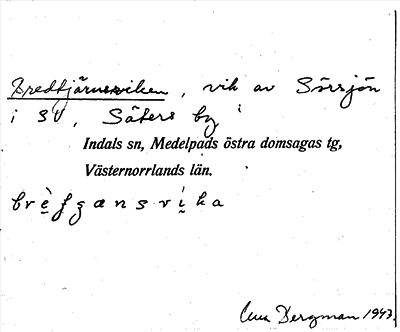 Bredtjärnsviken, vik av Sörsjön
i SV, Säters by
Indals sn, Medelpads östra domsagas tg,
Västernorrlands län.
Bergman 1943.